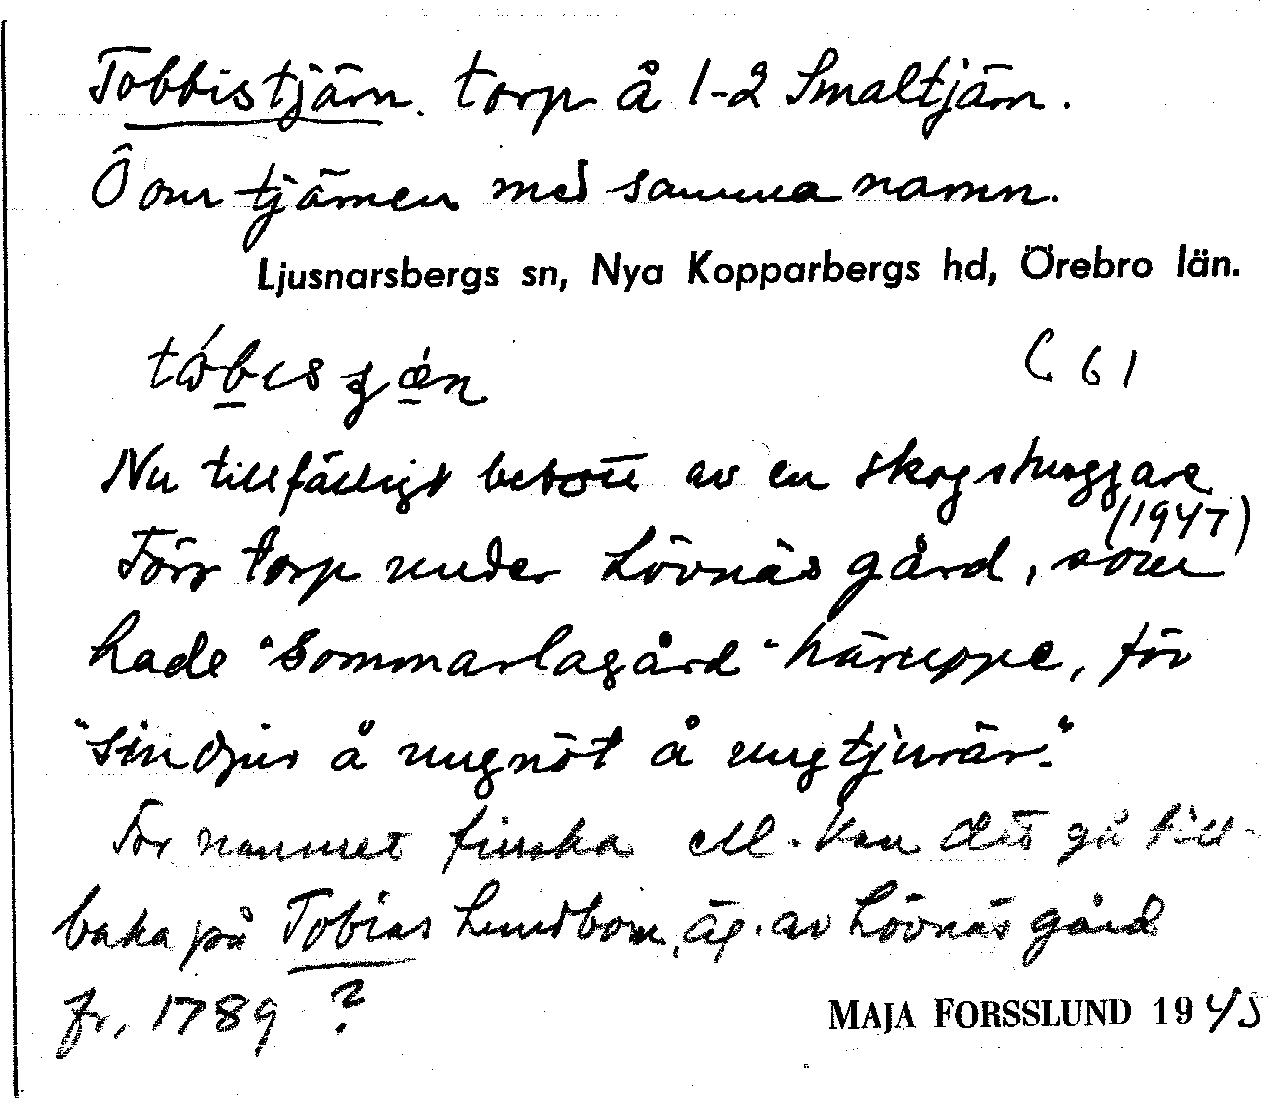 Tobbistjärn. torp å 1-2 Smaltjärn.
Ö om tjärnen med samma namn.
Ljusnarsbergs sn, Nya Kopparbergs hd, Örebro län.
C 61
Nu tillfälligt bebott av en skogshuggare
(1947)
Förr torp under Lövnäs gård, som
hade "sommarlagård" häruppe, för
"sin djur å ungnöt å ungtjurär."
För namnet finska ell. kan det gå till-
baka på Tobias Lundbom, äg. av Lövnäs gård
fr. 1789 ?
MAJA FORSSLUND 1945